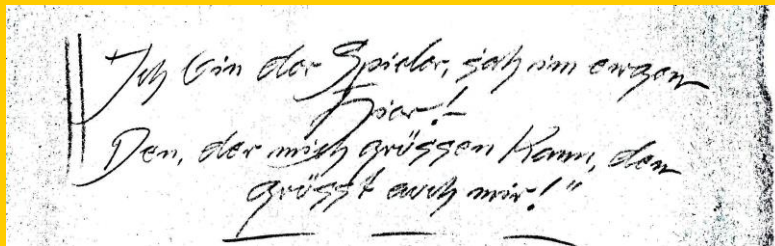 Ich bin der Spieler, sah im engen
Hier!
Den, der mich grüssen kann, den
grüsst auch mir!"